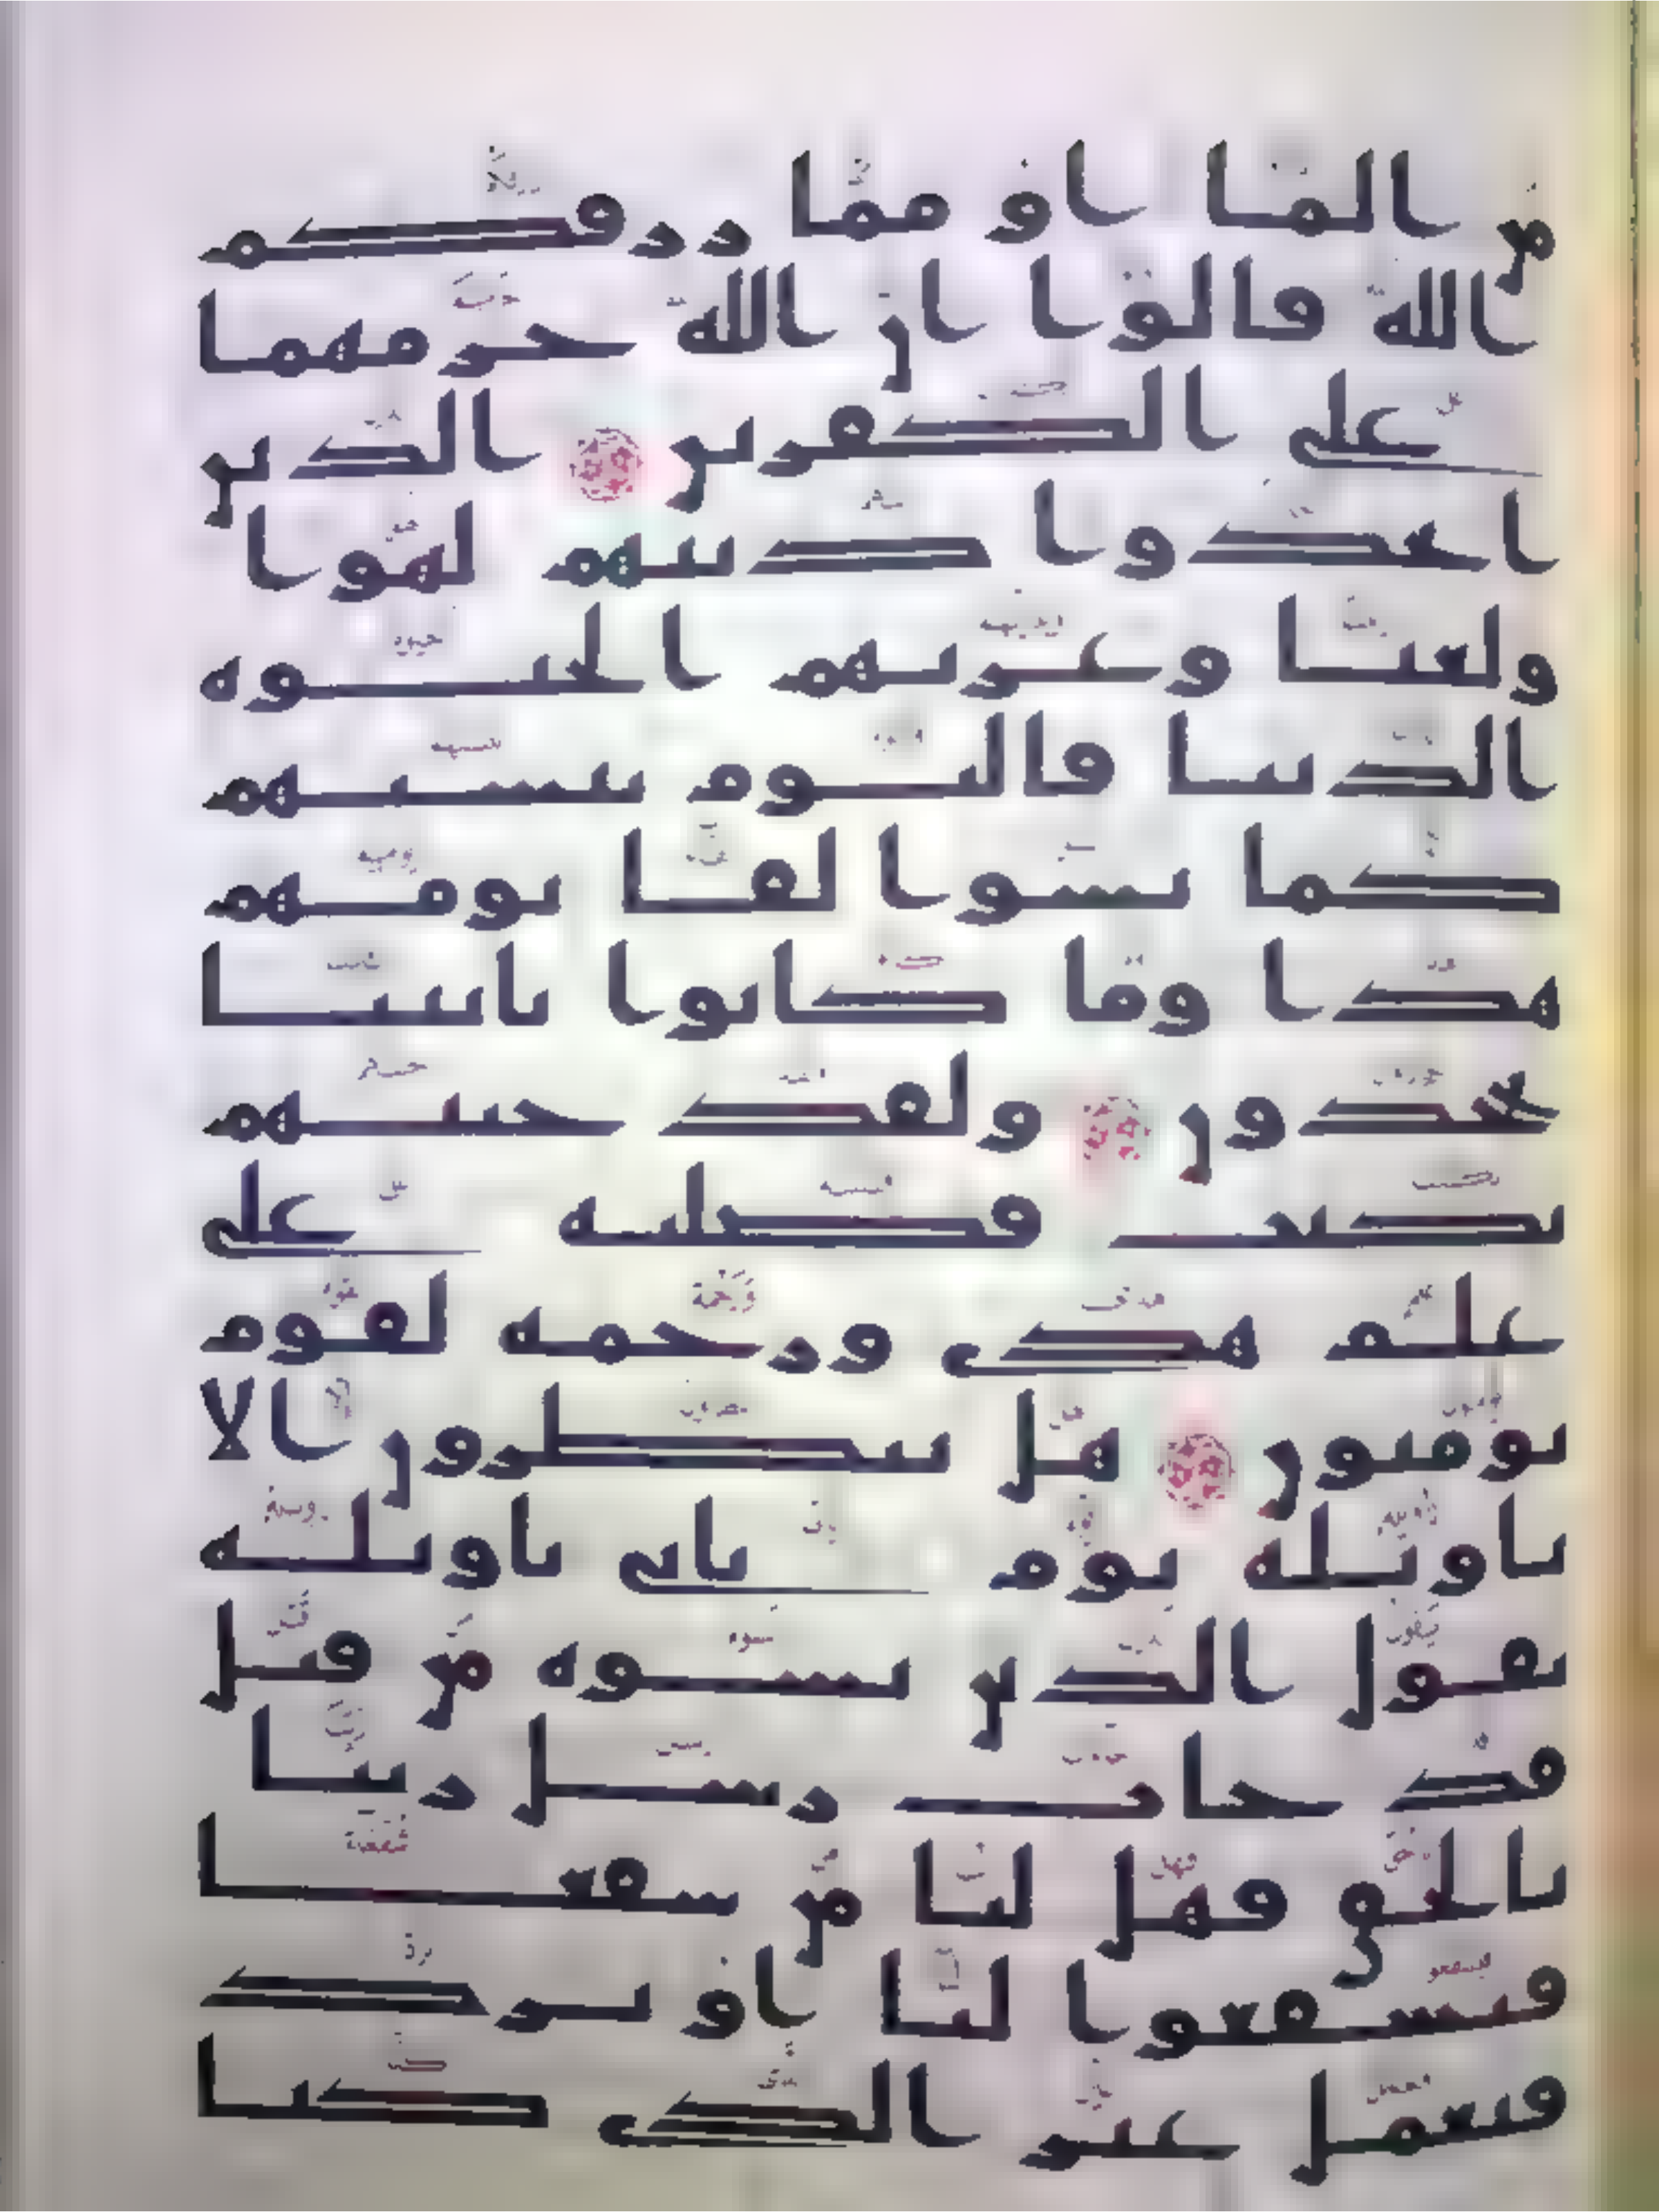 من الما او مما ررفكم
الله قالوا ان الله حرمهما
على الكفرين الذين
اتخذوا دينهم لهوا
ولعبا وغرتهم الحيوه
الدنيا فاليوم ننسيهم
كما نسوا لقا يومهم
هذا وما كانوا باييتنا
يجحدون ولقد جينهم
بكتب فصلنه على
علم هدى ورحمه لقوم
يومنون هل ينظرون الا
تاويله يوم ياتي تاويله
يقول الذين نسوه من قبل
قد جات رسل ربنا
بالحق فهل لنا من شفعا
فيشفعوا لنا او نرد
فنعمل غير الذي كنا